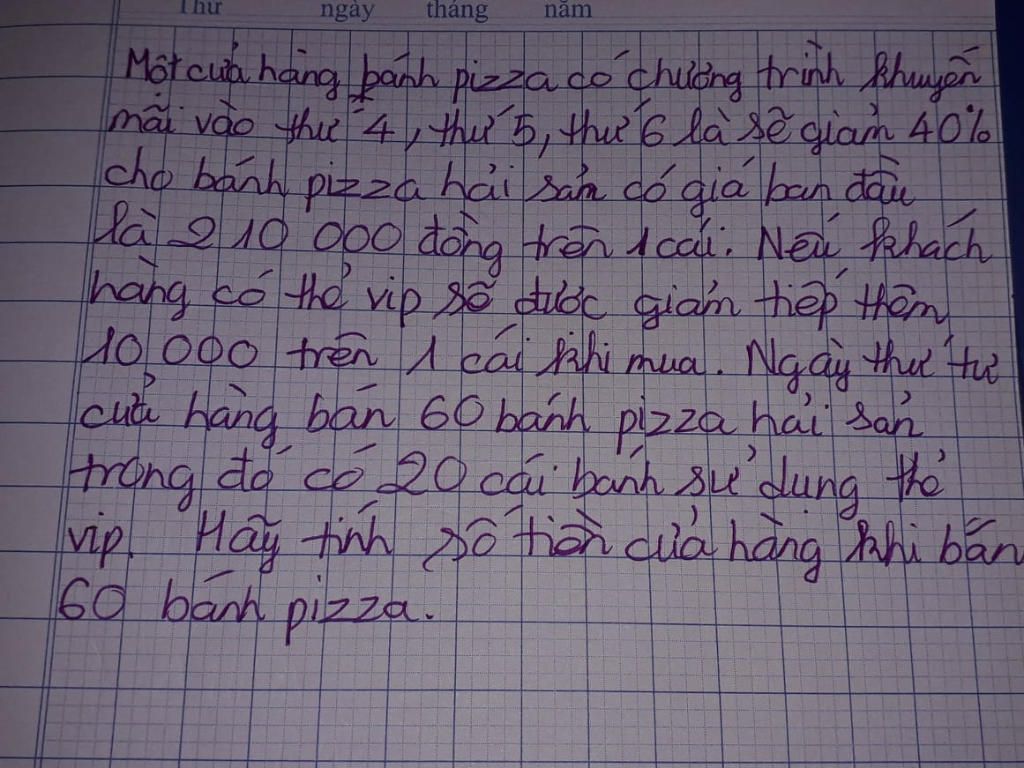 Thứ ngày tháng năm
Một cửa hàng bánh pizza có chương trình khuyến
mãi vào thứ 4, thứ 5, thứ 6 là sẽ giảm 40%
cho bánh pizza hải sản có giá ban đầu
là 210 000 đồng trên 1 cái. Nếu khách
hàng có thẻ vip sẽ được giảm tiếp thêm
10 000 trên 1 cái khi mua. Ngày thứ tư
cửa hàng bán 60 bánh pizza hải sản
trong đó có 20 cái bánh sử dụng thẻ
vip. Hãy tính số tiền cửa hàng khi bán
60 bánh pizza.